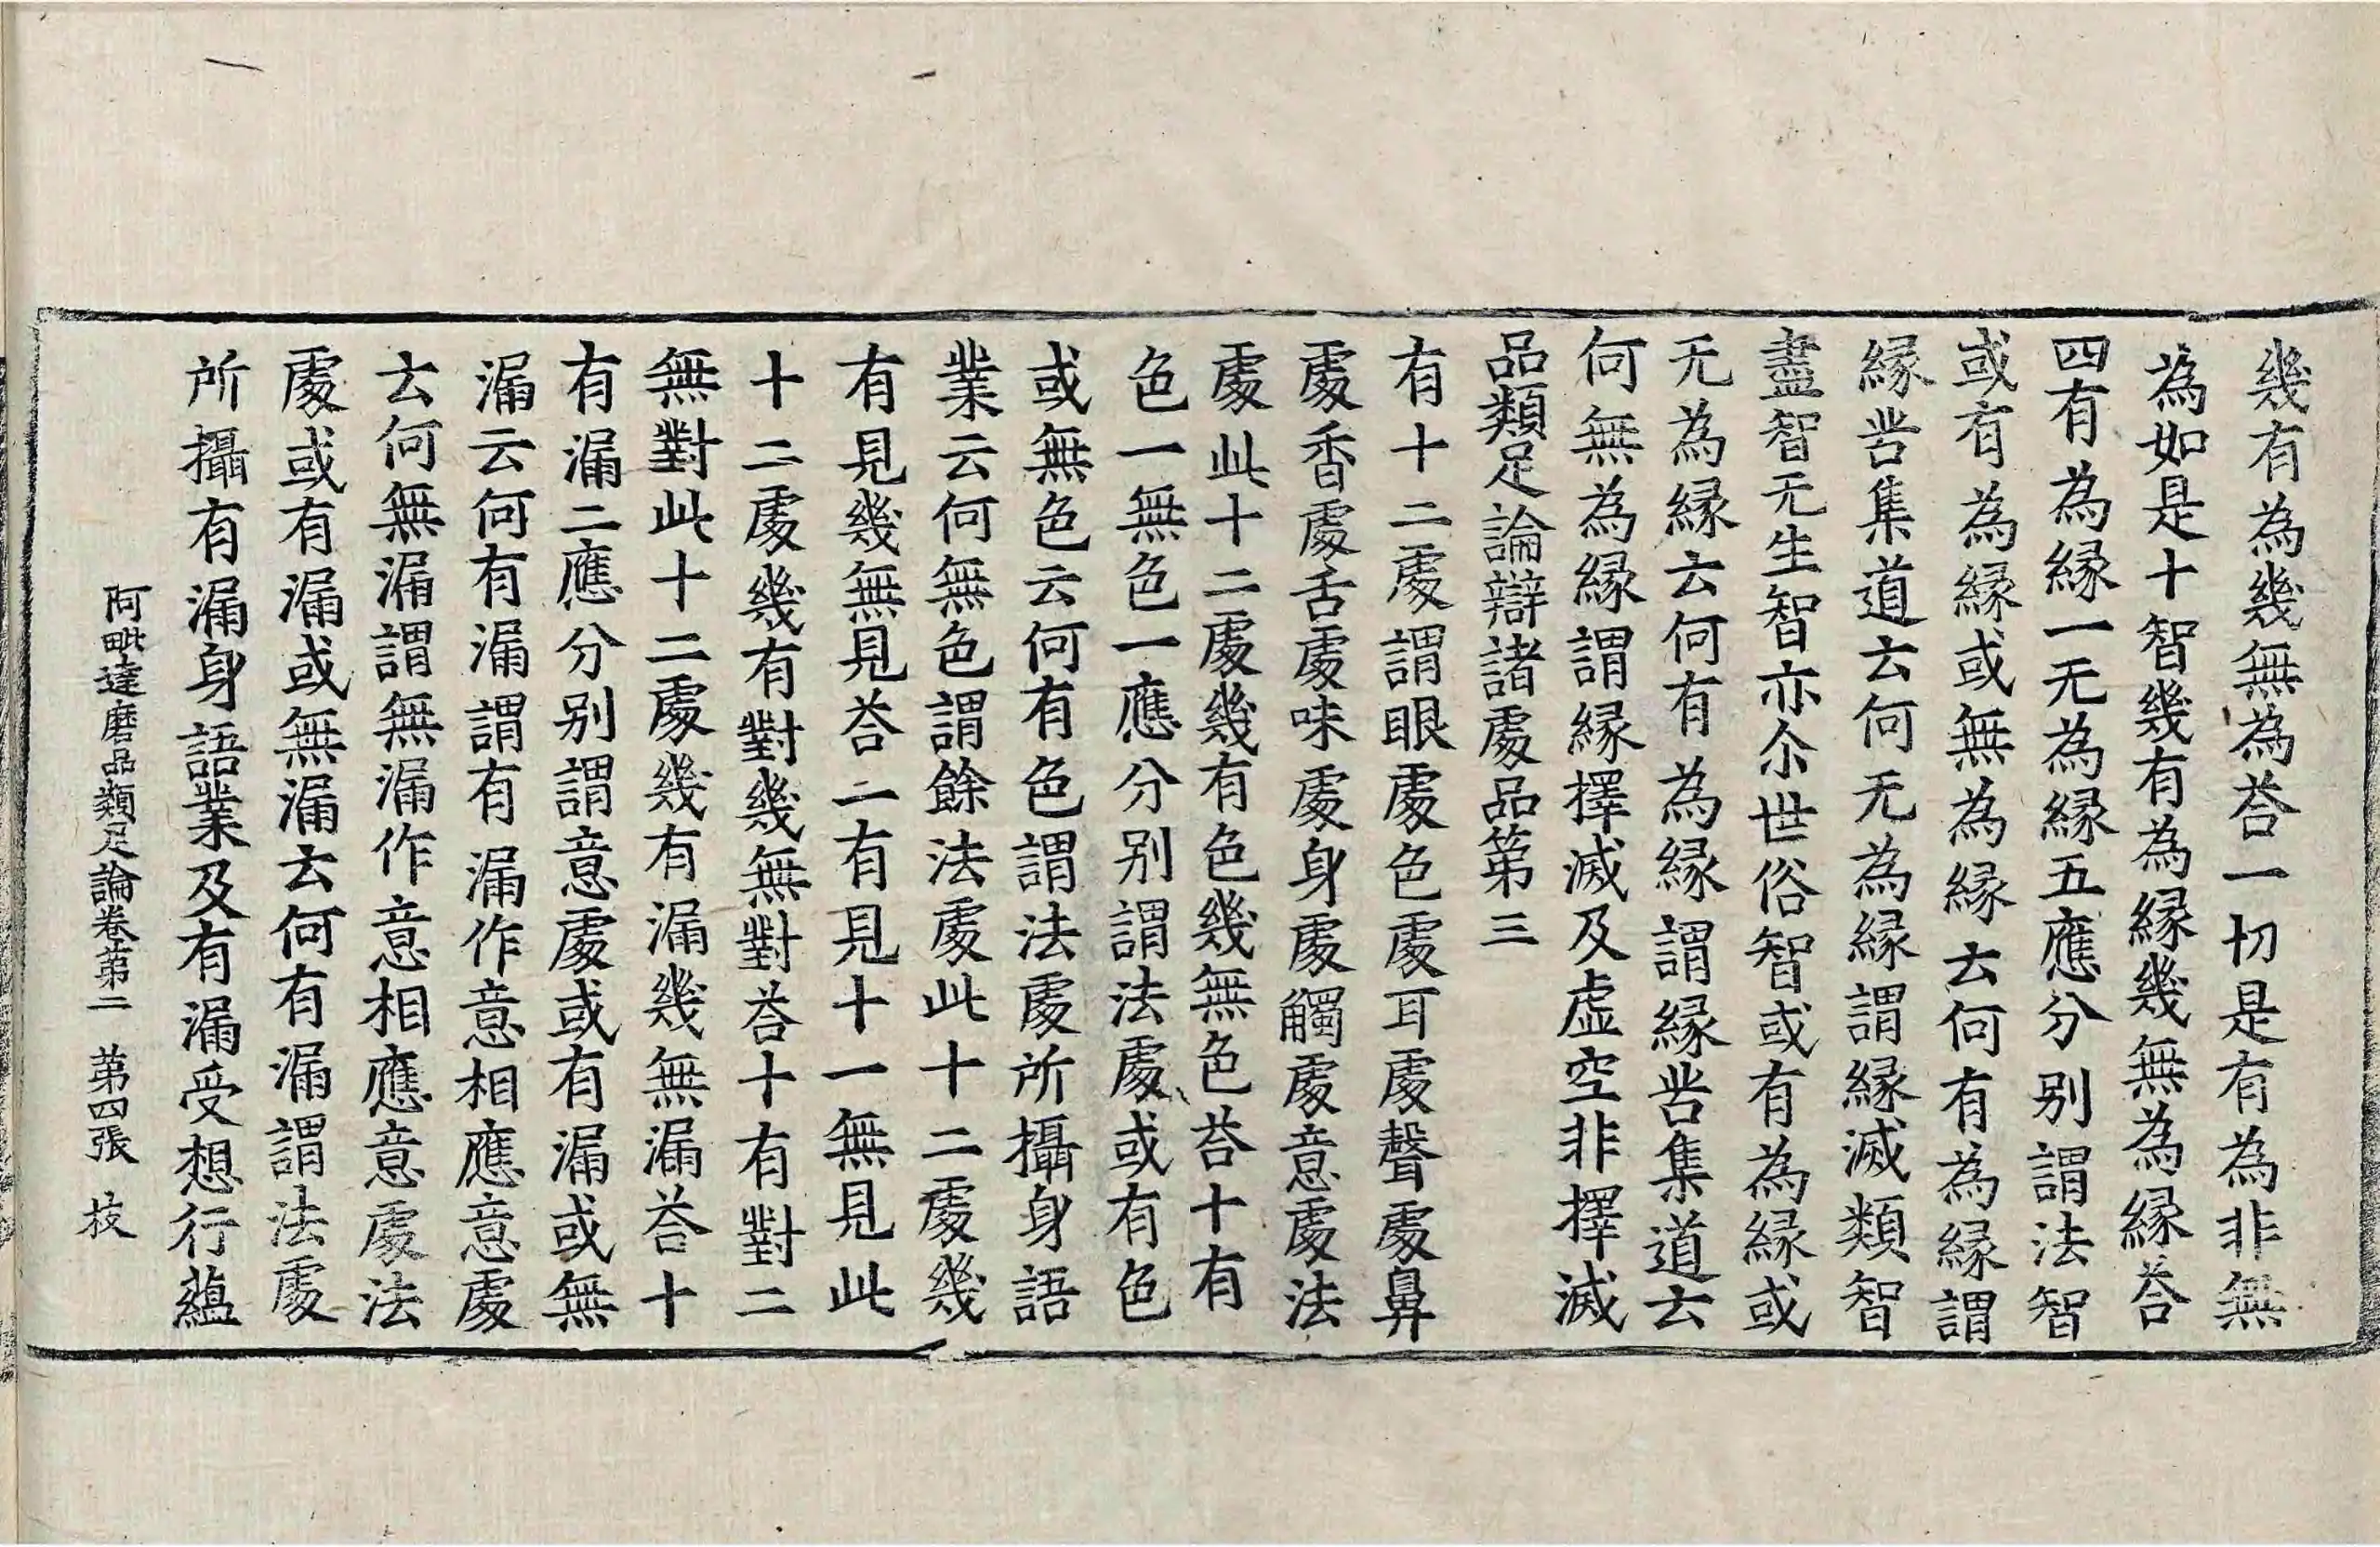 幾有為幾無為荅一切是有為非無
為如是十智幾有為緣幾無為緣荅
四有為緣一无為緣五應分别謂法智
或有為緣或無為緣云何有為緣謂
緣苦集道云何无為緣謂緣滅類智
盡智无生智亦尒世俗智或有為緣或
无為緣云何有為緣謂緣苦集道云
何無為緣謂緣擇滅及虛空非擇滅
品類足論辯諸處品第三
有十二處謂眼處色處耳處聲處鼻
處香處舌處味處身處觸處意處法
處此十二處幾有色幾無色荅十有
色一無色一應分别謂法處或有色
或無色云何有色謂法處所攝身語
業云何無色謂餘法處此十二處幾
有見幾無見荅一有見十一無見此
十二處幾有對幾無對荅十有對二
無對此十二處幾有漏幾無漏荅十
有漏二應分别謂意處或有漏或無
漏云何有漏謂有漏作意相應意處
云何無漏謂無漏作意相應意處法
處或有漏或無漏云何有漏謂法處
所攝有漏身語業及有漏受想行蘊
阿毗達磨品類足論卷第二 第四張 技